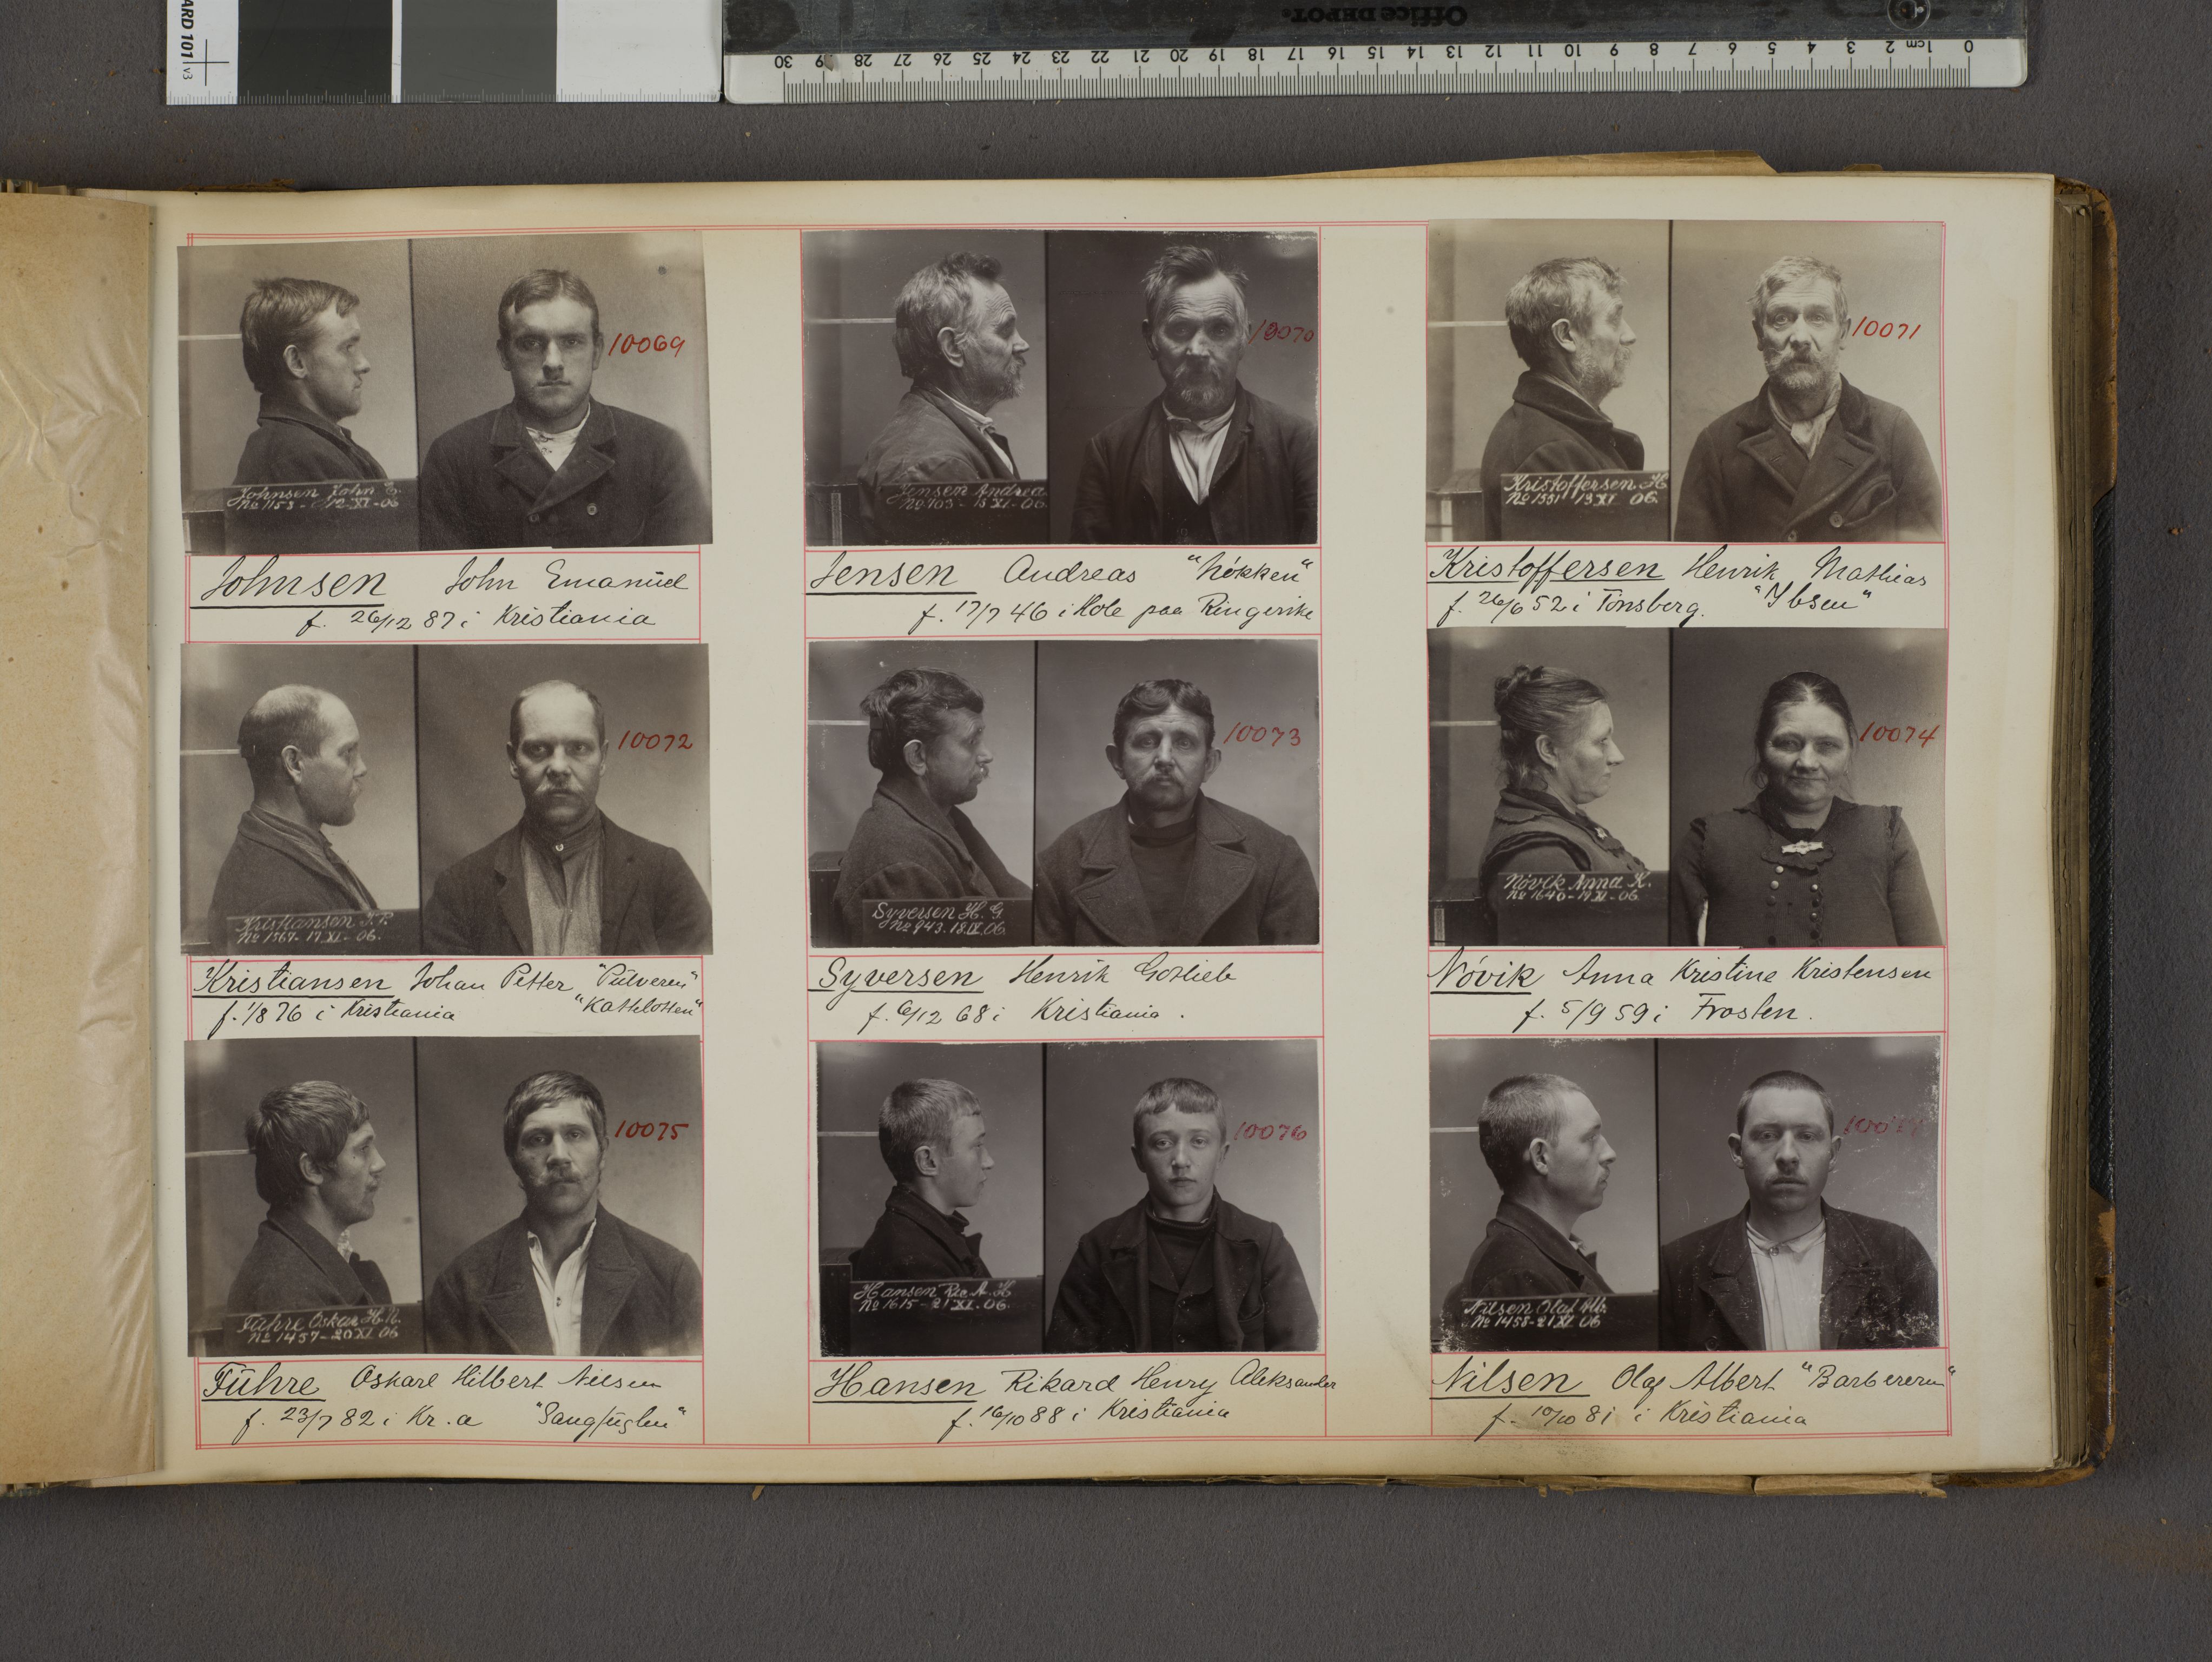 ARD 101 v3
Office DEPOT.
0 1cm 2 3 4 5 6 7 8 9 10 11 12 13 14 15 16 17 18 19 20 21 22 23 24 25 26 27 28 29 30
10069
Johnsen John E.
No 1153 - 12-XI-06
Johnsen John Emanuel
f. 26/12 87 i Kristiania
10070
Jensen Andrea
No 103 - 13 XI-06
Jensen Andreas "Nökken"
f. 17/7 46 i Hole paa Ringerike
10071
Kristoffersen H
No 1551 13 XI 06
Kristoffersen Henrik Mathias
f. 26/6 52 i Tönsberg. "Ibsen"
10072
Kristiansen J.P.
No 1567- 17 XI- 06.
Kristiansen Johan Petter "Pulveren"
f. 1/8 76 i Kristiania "Kattelotten"
10073
Syversen H. G.
No 943. 18 IX 06
Syversen Henrik Gotlieb
f. 6/12 68 i Kristiania.
10074
Nóvik Anna K.
No 1640-19 XI-06
Nóvik Anna Kristine Kristensen
f. 5/9 59 i Frosten.
10075
Fuhre Oskar H. N.
No 1457-20 XI 06
Fuhre Oskarl Hilbert Nilsen
f. 23/7 82 i Kr.a "Sangfuglen"
10076
Hansen Ric A. H
No 1615-21 XI. 06.
Hansen Rikard Henry Aleksander
f. 16/10 88 i Kristiania
10077
Nilsen Olaf Alb.
No 1458-21 XI 06
Nilsen Olaf Albert "Barberern"
f. 10/10 81 i Kristiania